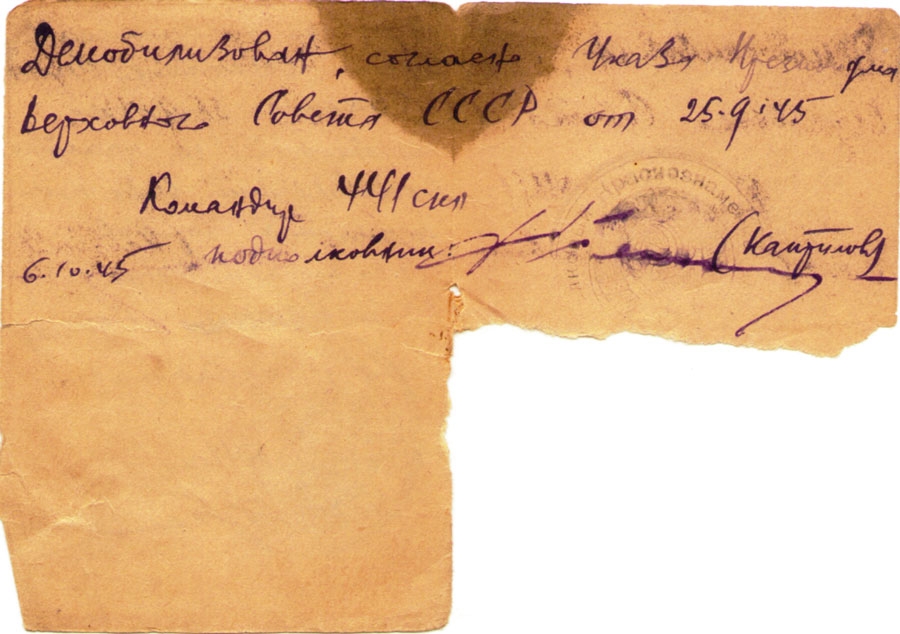 Демобилизован, согласно Указа Президиума
Верховного Совета СССР от 25.9.45
Командир 441 скп
подполковник (Каитилов)
6.10.45